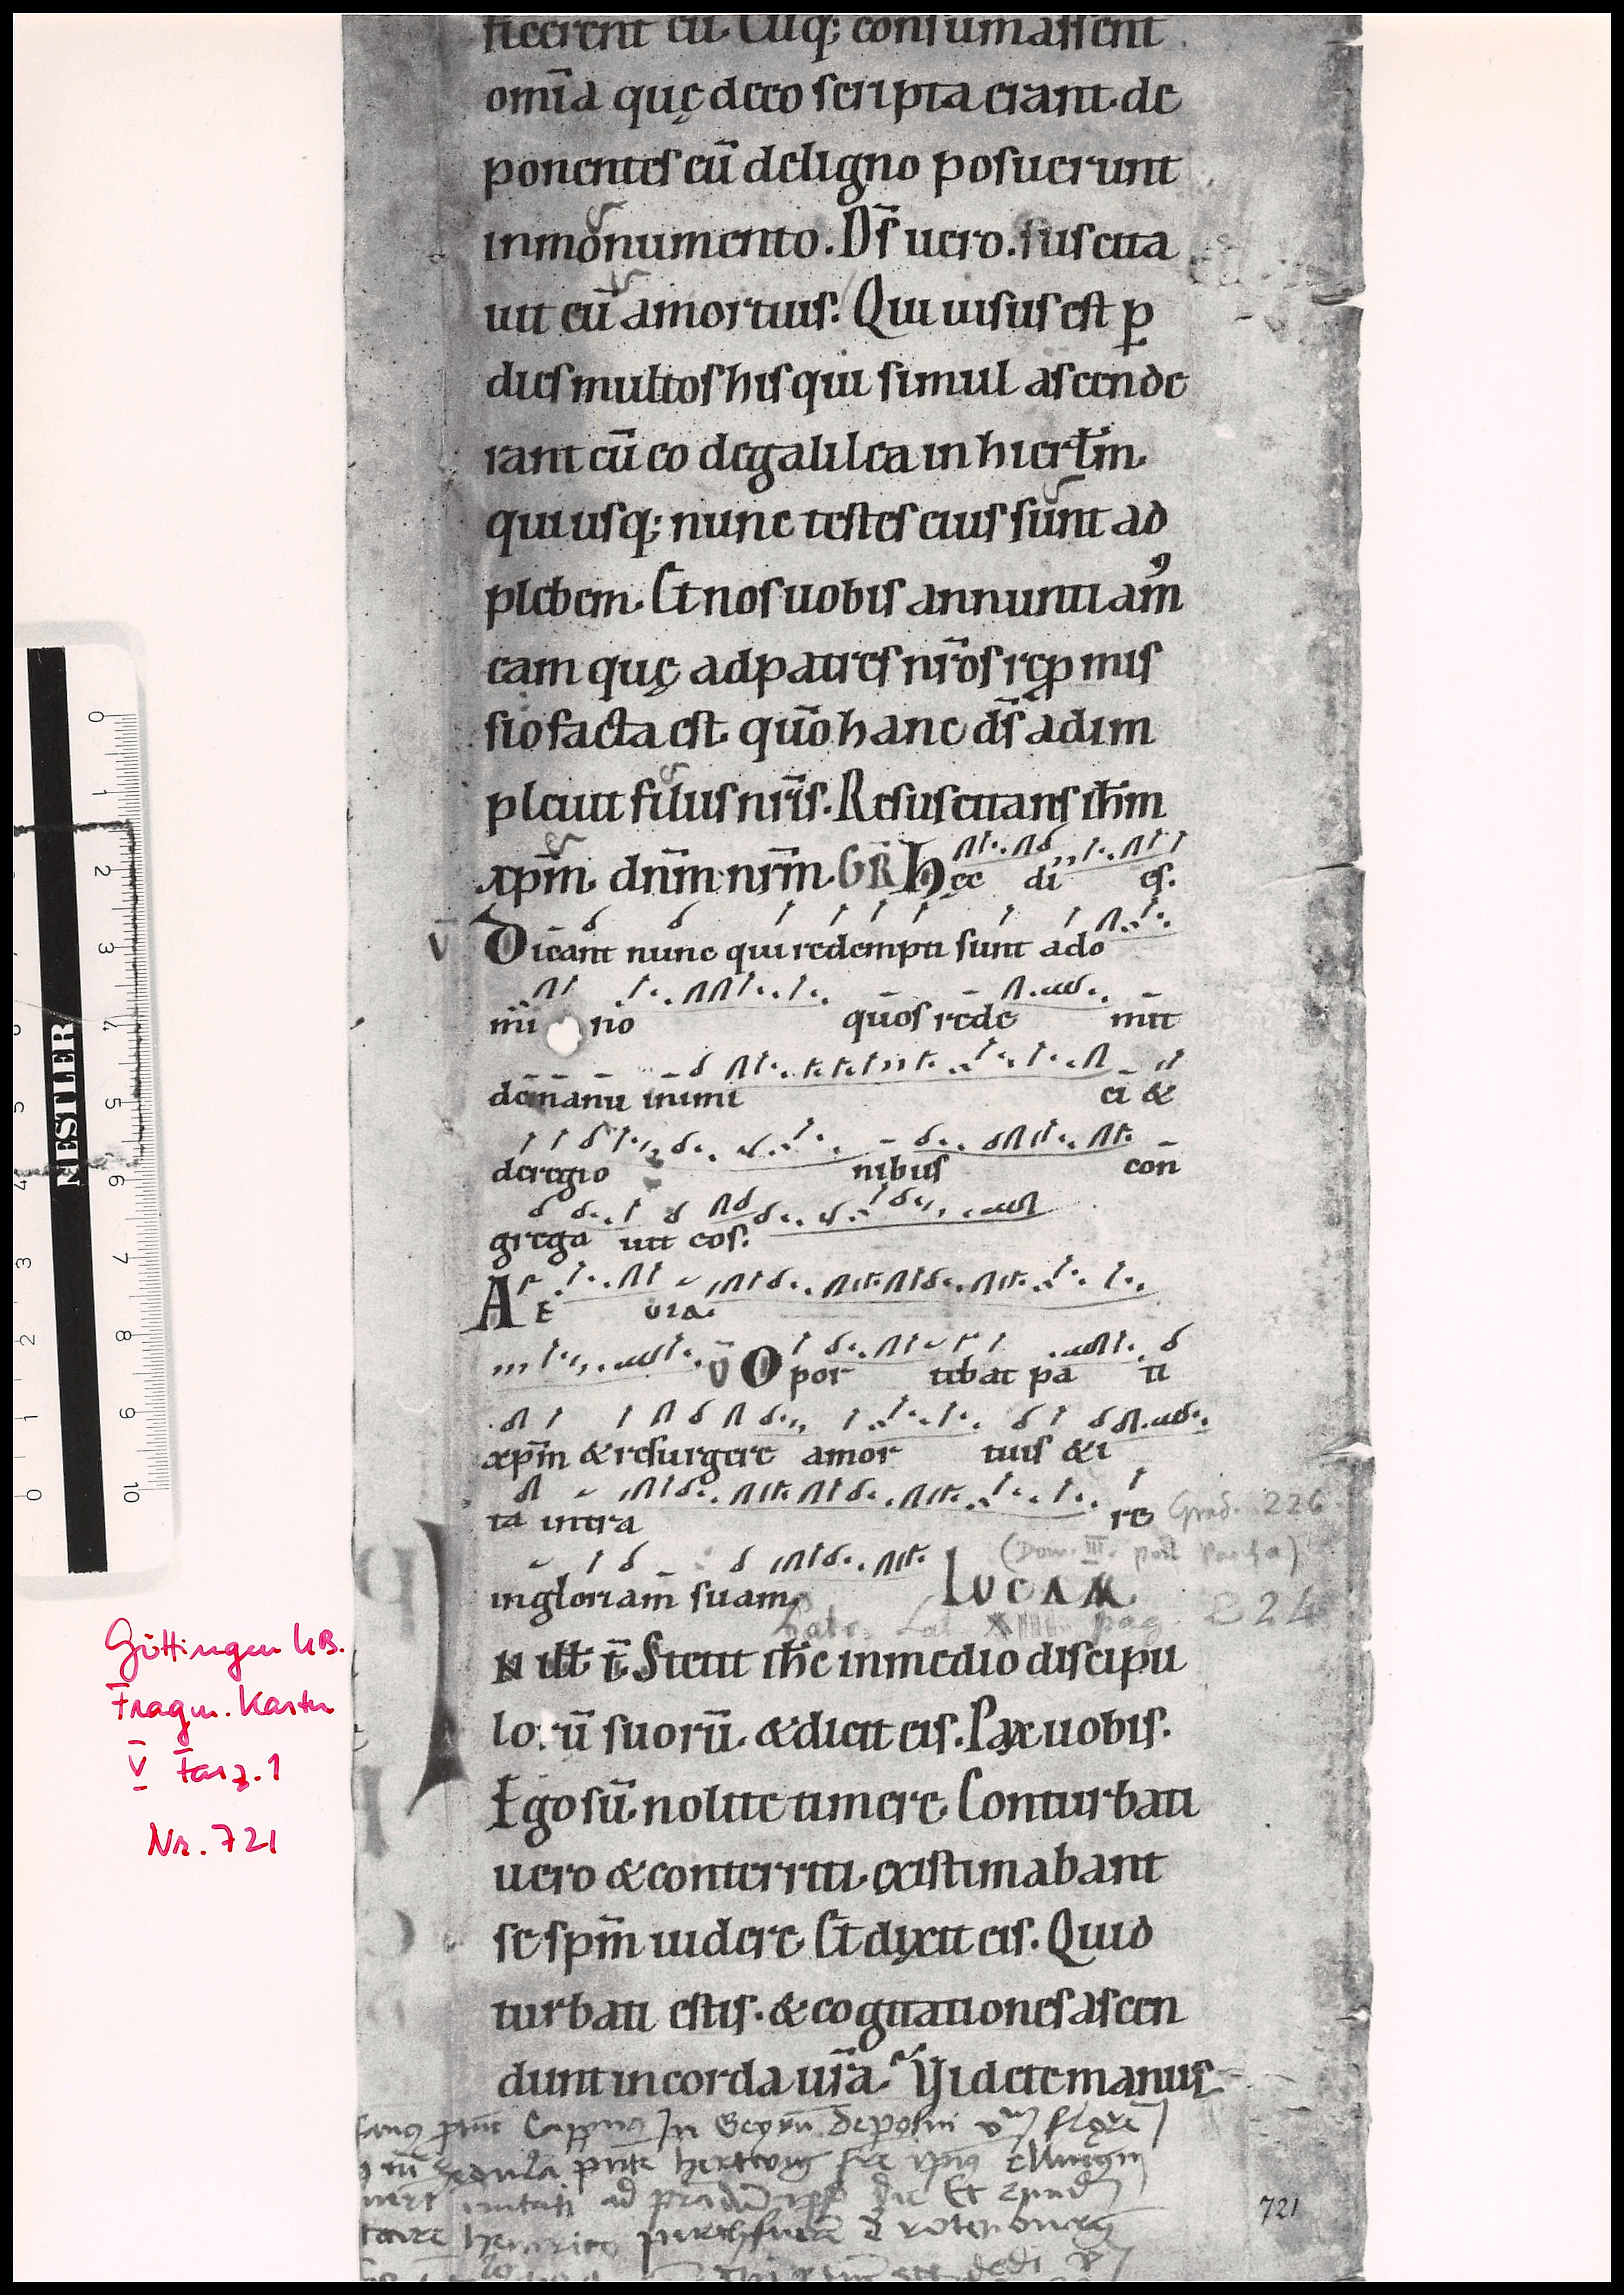 ficerent eū. Cūq; consumassent
om̄ia quę deeo scripta erant. de
ponentes eū deligno posuerunt
inmonumento. D̄s uero. suscita
uit eū amortuis. Qui uisus est ꝑ
dies multos his qui simul ascende
rant cū eo degalilea in hierłm.
qui usq; nunc testes eius sunt ad
plebem. Et nos uobis annuntiam᾽
eam quę adpatres nr̄os rep̱mis
sio facta est. qūo hanc d̄s adim
pleuit filiis nr̄is. Resuscitans ih̄m
xp̄m dn̄m nr̄m. GR̄ Hęc di es.
V̄ Dicant nunc qui redempti sunt ado
mi no quos rede mit
demanu inimi ci &
deregio nibus con
grega uit eos.
AE UIA.
V̄ Opor tebat pa ti
xp̄m & resurgere amor tuis & i
ta intra re Grad. 226
(Dom. III. post Pascha)
ingloriam suam. LUCAM
pag. 224
IN illł t̄. Stetit ih̄c inmedio discipu
lorū suorū. & dicit eis. Pax uobis.
Ego sū. nolite timere. Conturbati
uero & conterriti. existimabant
se sp̄m uidere. Et dixit eis. Quid
turbati estis. & cogitationes ascen
dunt incorda ur̄a. Videte manus
721
0 1 2 3 4 5 6 7 8 9 10
NESTLER
0 1 2 3 4 5
Göttingen UB.
Fragm. Kasten
V Fasz. 1
Nr. 721